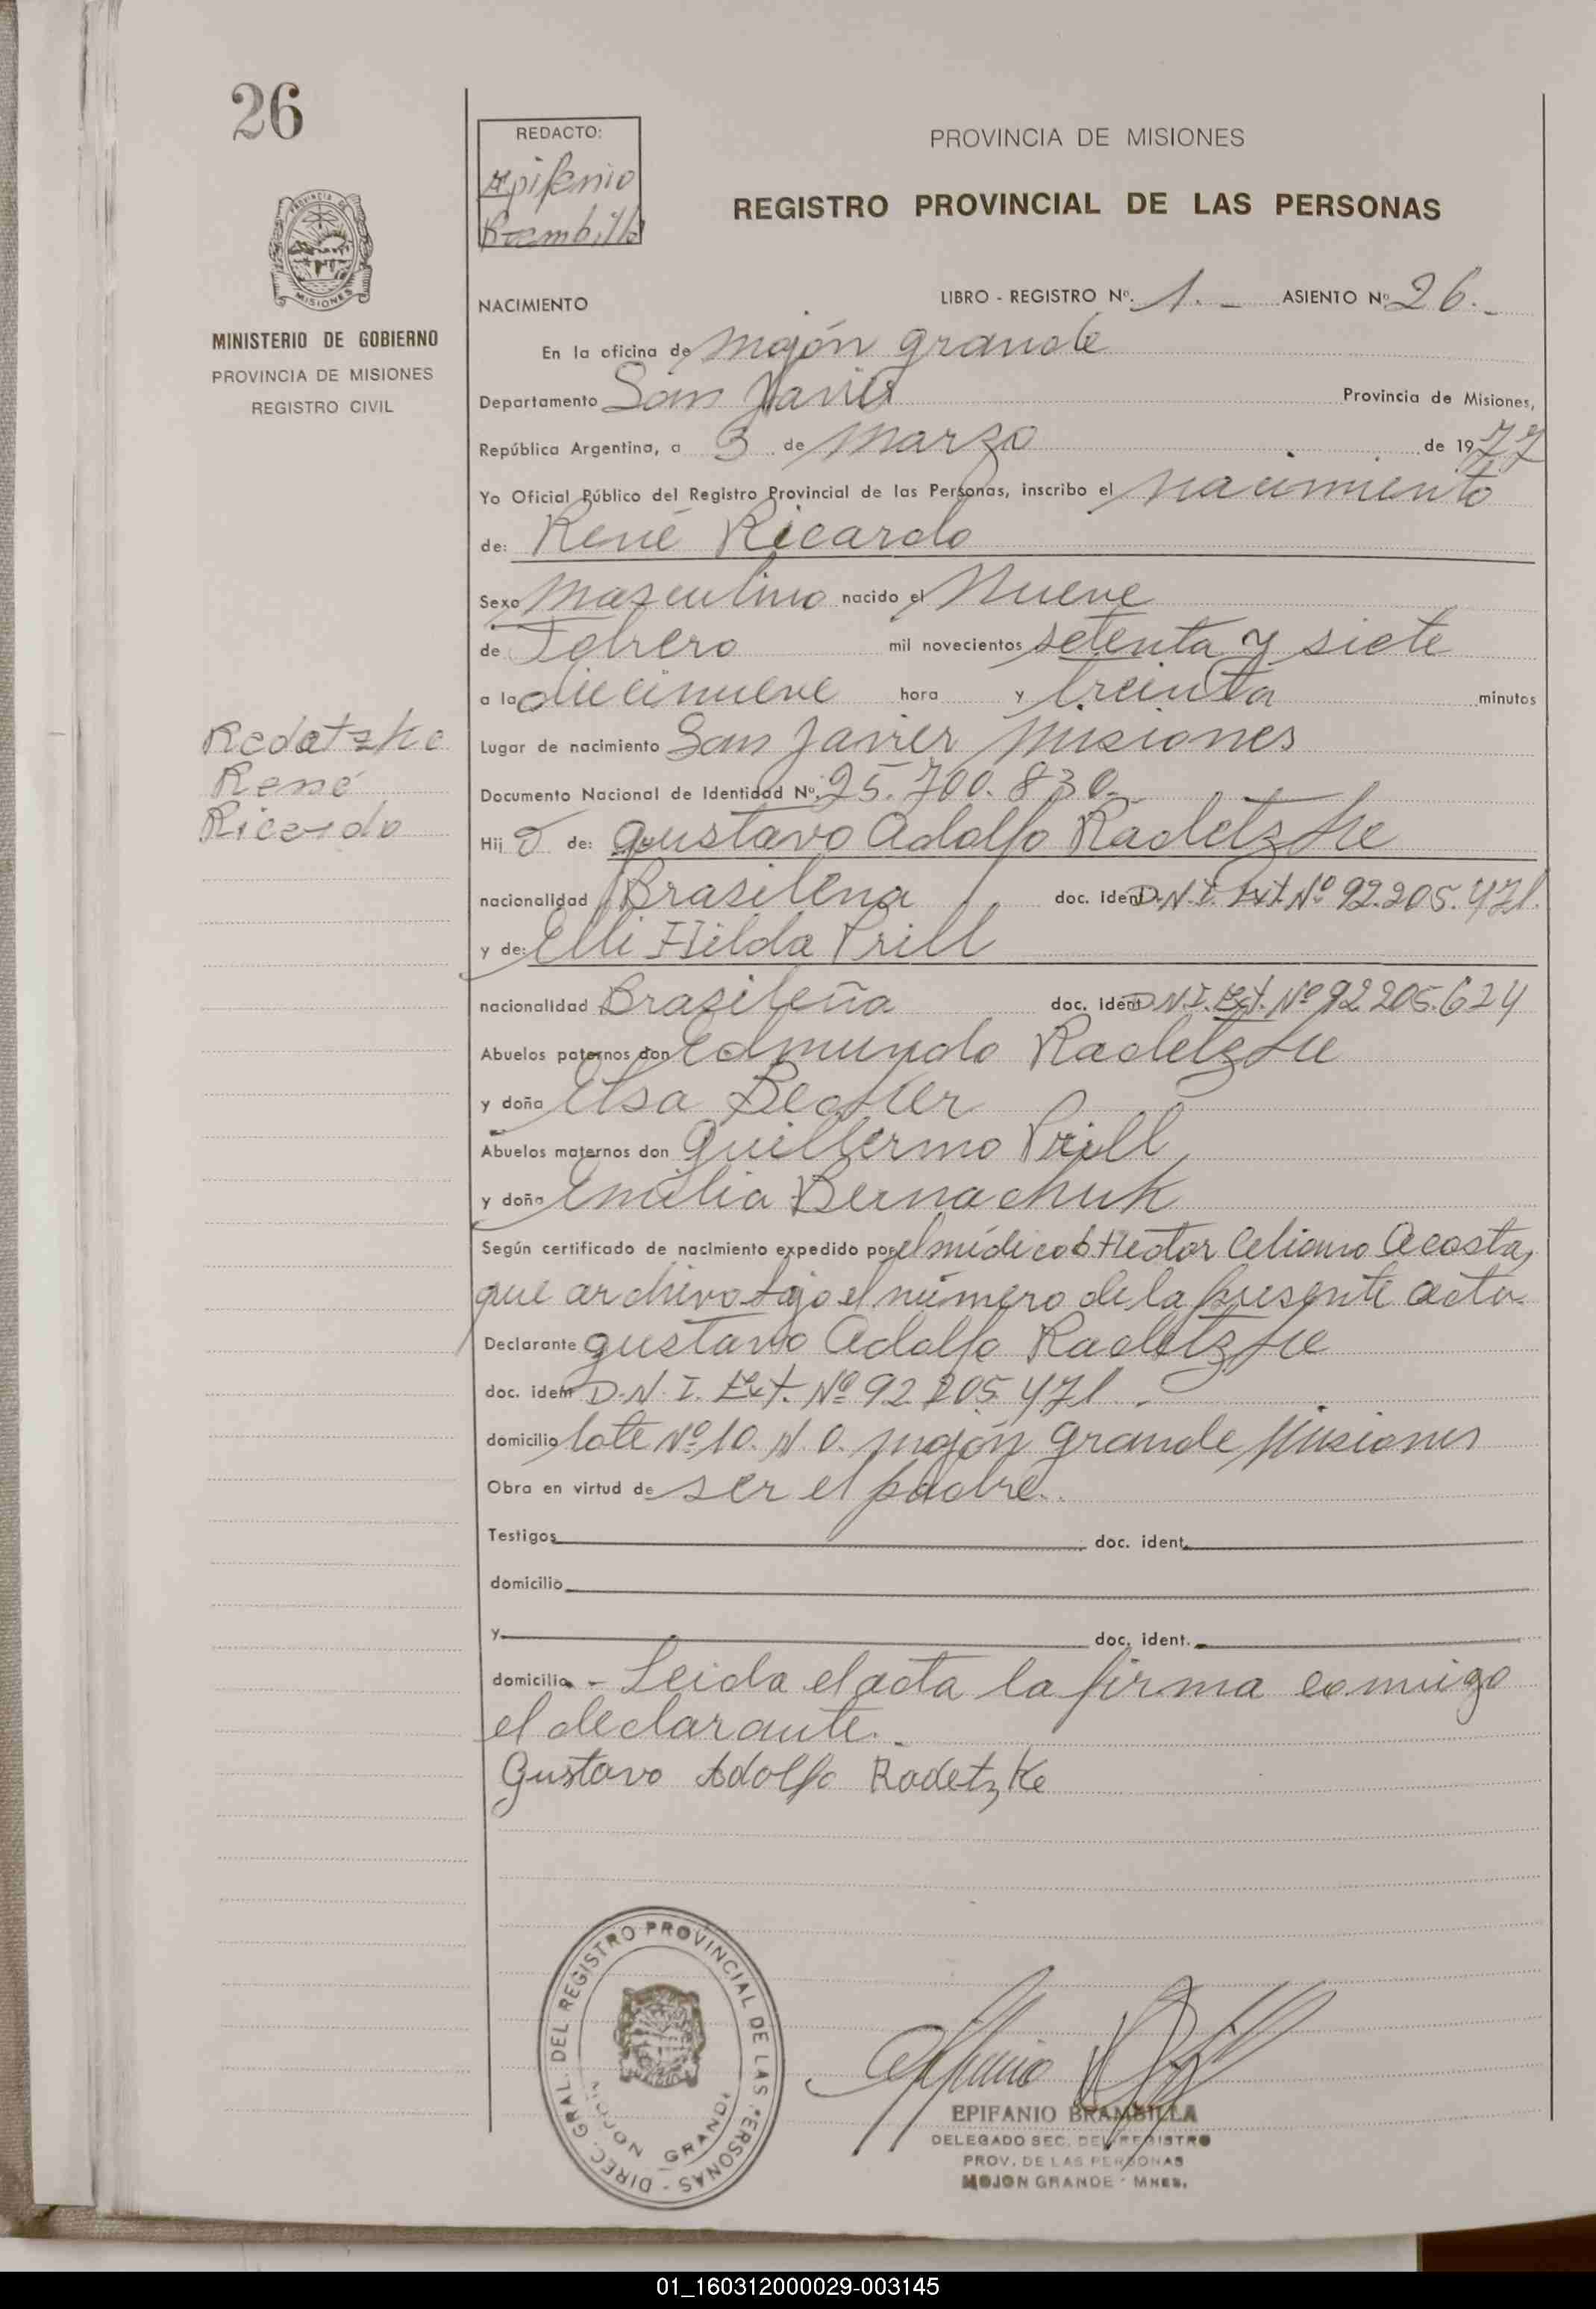 26
REDACTO:
Epifanio
Brambilla
PROVINCIA DE MISIONES
REGISTRO PROVINCIAL DE LAS PERSONAS
MISIONES
MINISTERIO DE GOBIERNO
PROVINCIA DE MISIONES
REGISTRO CIVIL
NACIMIENTO
LIBRO - REGISTRO Nº. 1. - ASIENTO Nº 26.-
En la oficina de Mojón grande
Departamento San Javier Provincia de Misiones,
República Argentina, a 3 de Marzo de 1977
Yo Oficial Público del Registro Provincial de las Personas, inscribo el nacimiento
de: René Ricardo
Sexo Masculino nacido el Nueve
de Febrero mil novecientos setenta y siete
a la diecinueve hora y treinta minutos
Radetzke
René
Ricardo
Lugar de nacimiento San Javier Misiones
Documento Nacional de Identidad Nº. 25.700.830.-
Hij o de: Gustavo Adolfo Radetzke
nacionalidad Brasileña doc. ident D.N.I. Ext. Nº 92.205.471.
y de: Elli Hilda Prill
nacionalidad Brasileña doc. ident D.N.I. Ext. Nº 92.205.624
Abuelos paternos don Edmundo Radetzke
y doña Elsa Becker
Abuelos maternos don Guillermo Prill
y doña Emilia Bernachuk
Según certificado de nacimiento expedido por el médico Hector Celiano Acosta,
que archivo bajo el número de la presente acta.
Declarante Gustavo Adolfo Radetzke
doc. ident D.N.I. Ext. Nº 92.205.471.-
domicilio lote Nº 10. N.O. Mojón grande Misiones
Obra en virtud de ser el padre.
Testigos doc. ident.
domicilio
y doc. ident.
domicilio - Leida el acta la firma comigo
el declarante.-
Gustavo Adolfo Radetzke
DIREC. GRAL. DEL REGISTRO PROVINCIAL DE LAS PERSONAS -
MOJON GRANDE
EPIFANIO BRAMBILLA
DELEGADO SEC. DEL REGISTRO
PROV. DE LAS PERSONAS
MOJON GRANDE - MNES.
01_160312000029-003145